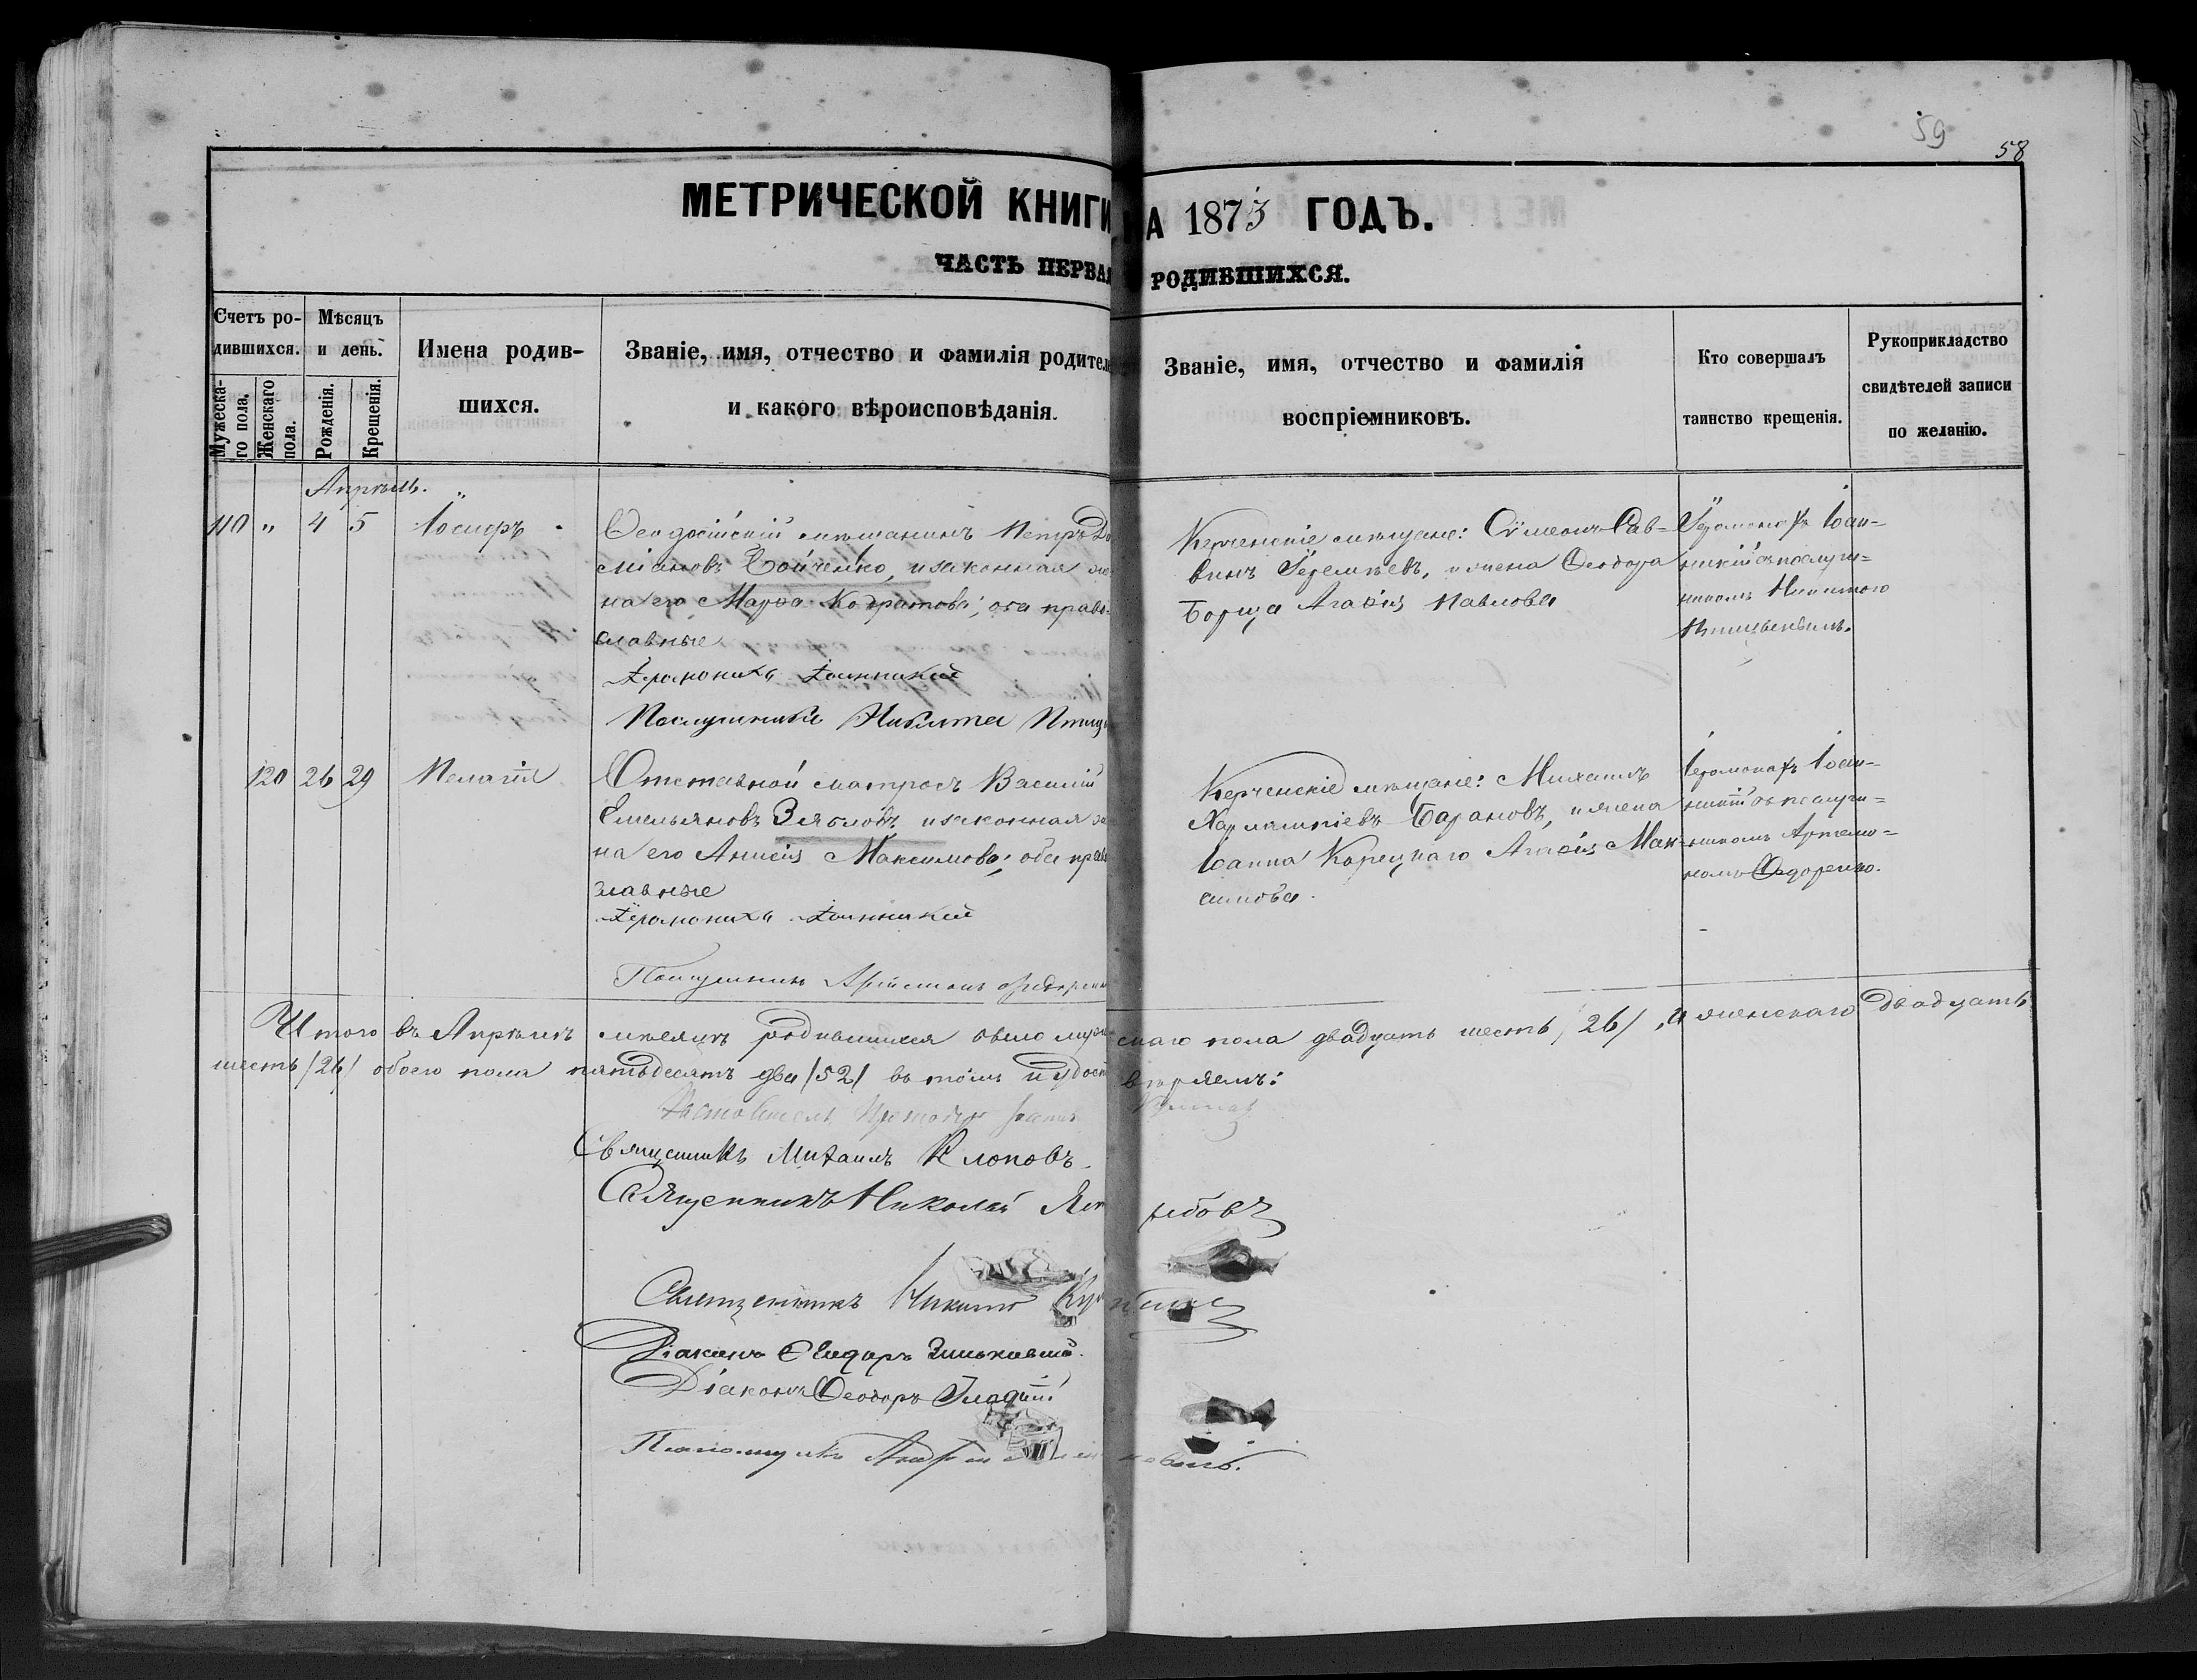 59
58
МЕТРИЧЕСКОЙ КНИГИ НА 1873 ГОДЪ.
ЧАСТЬ ПЕРВАЯ РОДИВШИХСЯ.
Счетъ ро-
дившихся.
Мужеска-
го пола.
Женскаго
пола.
Мѣсяцъ
и день.
Рожденія.
Крещенія.
Имена родив-
шихся.
Званіе, имя, отчество и фамилія родител
и какого вѣроисповѣданія.
Званіе, имя, отчество и фамилія
воспріемниковъ.
Кто совершалъ
таинство крещенія.
Рукоприкладство
свидѣтелей записи
по желанію.
Апрѣль.
110 " 4 5 Іосифъ
Ѳеодосійскій мѣщанинъ Петръ До
міановъ Бойченко, и законная же
на его Марѳа Кодратова; оба право-
славные
Іеромонахъ Іоанникій
Послушникъ Никита Птиц
Керченскіе мѣщане: Сѵмеонъ Сав-
винъ Геремѣевъ, и жена Ѳеодора
Борща Агаѳія Павлова
Іеромонахъ Іоан-
никій съ послуш-
никомъ Никитою

120 26 29 Пелагія
Отставной матросъ Василій
Емельяновъ Зябловъ, и законная же
на его Анисія Максимова; оба право
славные
Іеромонахъ Іоанникій
Послушникъ Артемонъ Ѳедоренк
Керченскіе мѣщане: Михаилъ
Харлампіевъ Барановъ, и жена
Іоанна Корецкаго Агаѳія Мак-
симова.
Іеромонахъ Іоан-
никій съ послуш-
никомъ Артемо-
номъ Ѳедоренко.
Итого въ Апрѣлѣ мѣсяцѣ родившихся было мужескаго пола двадцать шесть /26/, и женскаго двадцать
шесть /26/ обоего пола пятьдесятъ два /52/ въ томъ и удостовѣряемъ:
Священникъ Михаилъ Клоповъ.
Священникъ Николай
Священникъ Никита
Діаконъ Ѳеодоръ Зиньковскій.
Діаконъ Ѳеодоръ Гладкій
Пономарь